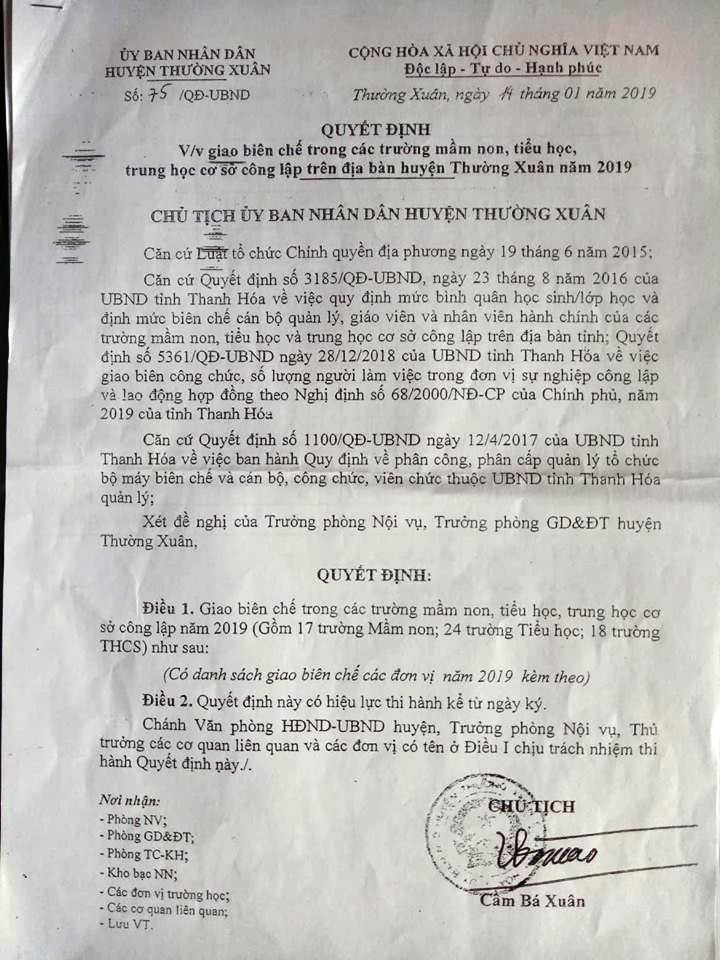 ỦY BAN NHÂN DÂN
HUYỆN THƯỜNG XUÂN
Số: 75 /QĐ-UBND
CỘNG HÒA XÃ HỘI CHỦ NGHĨA VIỆT NAM
Độc lập - Tự do - Hạnh phúc
Thường Xuân, ngày 14 tháng 01 năm 2019
QUYẾT ĐỊNH
V/v giao biên chế trong các trường mầm non, tiểu học,
trung học cơ sở công lập trên địa bàn huyện Thường Xuân năm 2019
CHỦ TỊCH ỦY BAN NHÂN DÂN HUYỆN THƯỜNG XUÂN
Căn cứ Luật tổ chức Chính quyền địa phương ngày 19 tháng 6 năm 2015;
Căn cứ Quyết định số 3185/QĐ-UBND, ngày 23 tháng 8 năm 2016 của
UBND tỉnh Thanh Hóa về việc quy định mức bình quân học sinh/lớp học và
định mức biên chế cán bộ quản lý, giáo viên và nhân viên hành chính của các
trường mầm non, tiểu học và trung học cơ sở công lập trên địa bàn tỉnh; Quyết
định số 5361/QĐ-UBND ngày 28/12/2018 của UBND tỉnh Thanh Hóa về việc
giao biên công chức, số lượng người làm việc trong đơn vị sự nghiệp công lập
và lao động hợp đồng theo Nghị định số 68/2000/NĐ-CP của Chính phủ, năm
2019 của tỉnh Thanh Hóa
Căn cứ Quyết định số 1100/QĐ-UBND ngày 12/4/2017 của UBND tỉnh
Thanh Hóa về việc ban hành Quy định về phân công, phân cấp quản lý tổ chức
bộ máy biên chế và cán bộ, công chức, viên chức thuộc UBND tỉnh Thanh Hóa
quản lý;
Xét đề nghị của Trưởng phòng Nội vụ, Trưởng phòng GD&ĐT huyện
Thường Xuân,
QUYẾT ĐỊNH:
Điều 1. Giao biên chế trong các trường mầm non, tiểu học, trung học cơ
sở công lập năm 2019 (Gồm 17 trường Mầm non; 24 trường Tiểu học; 18 trường
THCS) như sau:
(Có danh sách giao biên chế các đơn vị năm 2019 kèm theo)
Điều 2. Quyết định này có hiệu lực thi hành kể từ ngày ký.
Chánh Văn phòng HĐND-UBND huyện, Trưởng phòng Nội vụ, Thủ
trưởng các cơ quan liên quan và các đơn vị có tên ở Điều I chịu trách nhiệm thi
hành Quyết định này./.
Nơi nhận:
- Phòng NV;
- Phòng GD&ĐT;
- Phòng TC-KH;
- Kho bạc NN;
- Các đơn vị trường học;
- Các cơ quan liên quan;
- Lưu VT.
CHỦ TỊCH
Cầm Bá Xuân